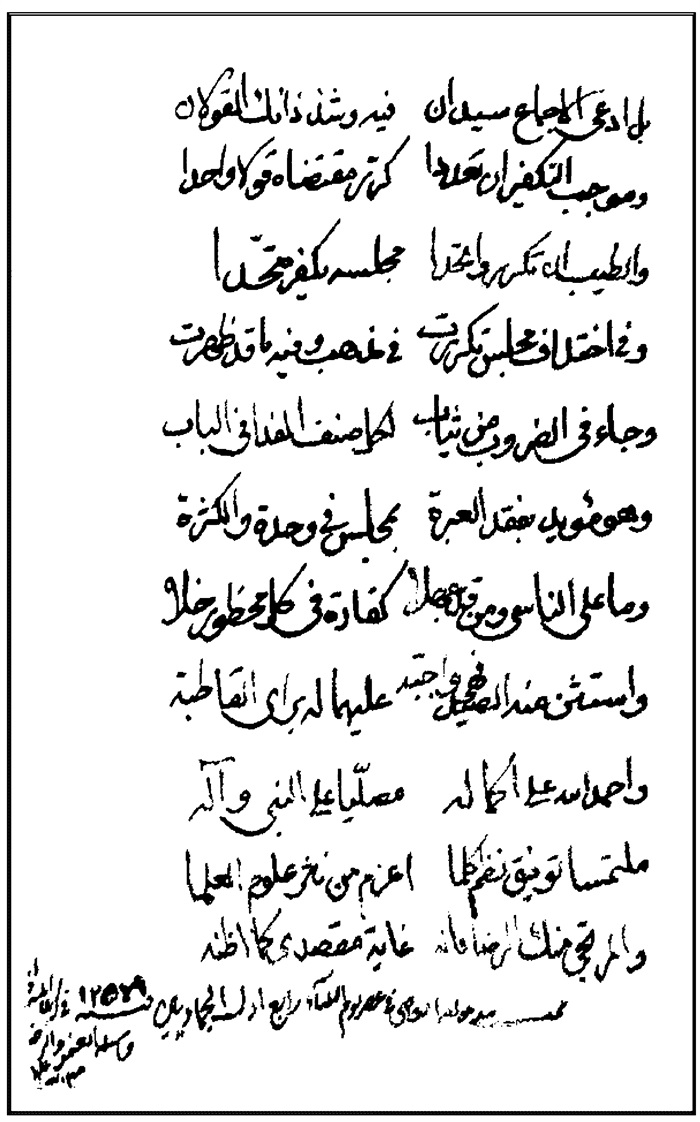 بل ادعى الاجماع سيدان فيه وشذ ذانك القولان
وموجب التكفير ان تعددا كرر مقتضاه قولا واحدا
والطيب ان تكرر واتحدا مجلسه تكفير متحدا
وفي اختلاف مجلس تكررت في مذهب وفيه ما قد ظهرت
وجاء في الضروب من ثياب لكل صنف الفدا في الباب
وهو مؤيد بفقد العبرة بمجلس في وحدة والكثرة
وما على الناسي ومن قد جهلا كفارة في كل محظور خلا
واستثن منه الصيد فهي واجبه عليهما له براي القاطبة
واحمد الله على اكماله مصليا على النبي وآله
ملتمسا توفيق نفع كلما اعزم من نشر علوم العلما
والمرتجى منك الرضا فانه غاية مقصدي كما اظنه
في عصر يوم الثلثاء رابع اول الجمادين سنة